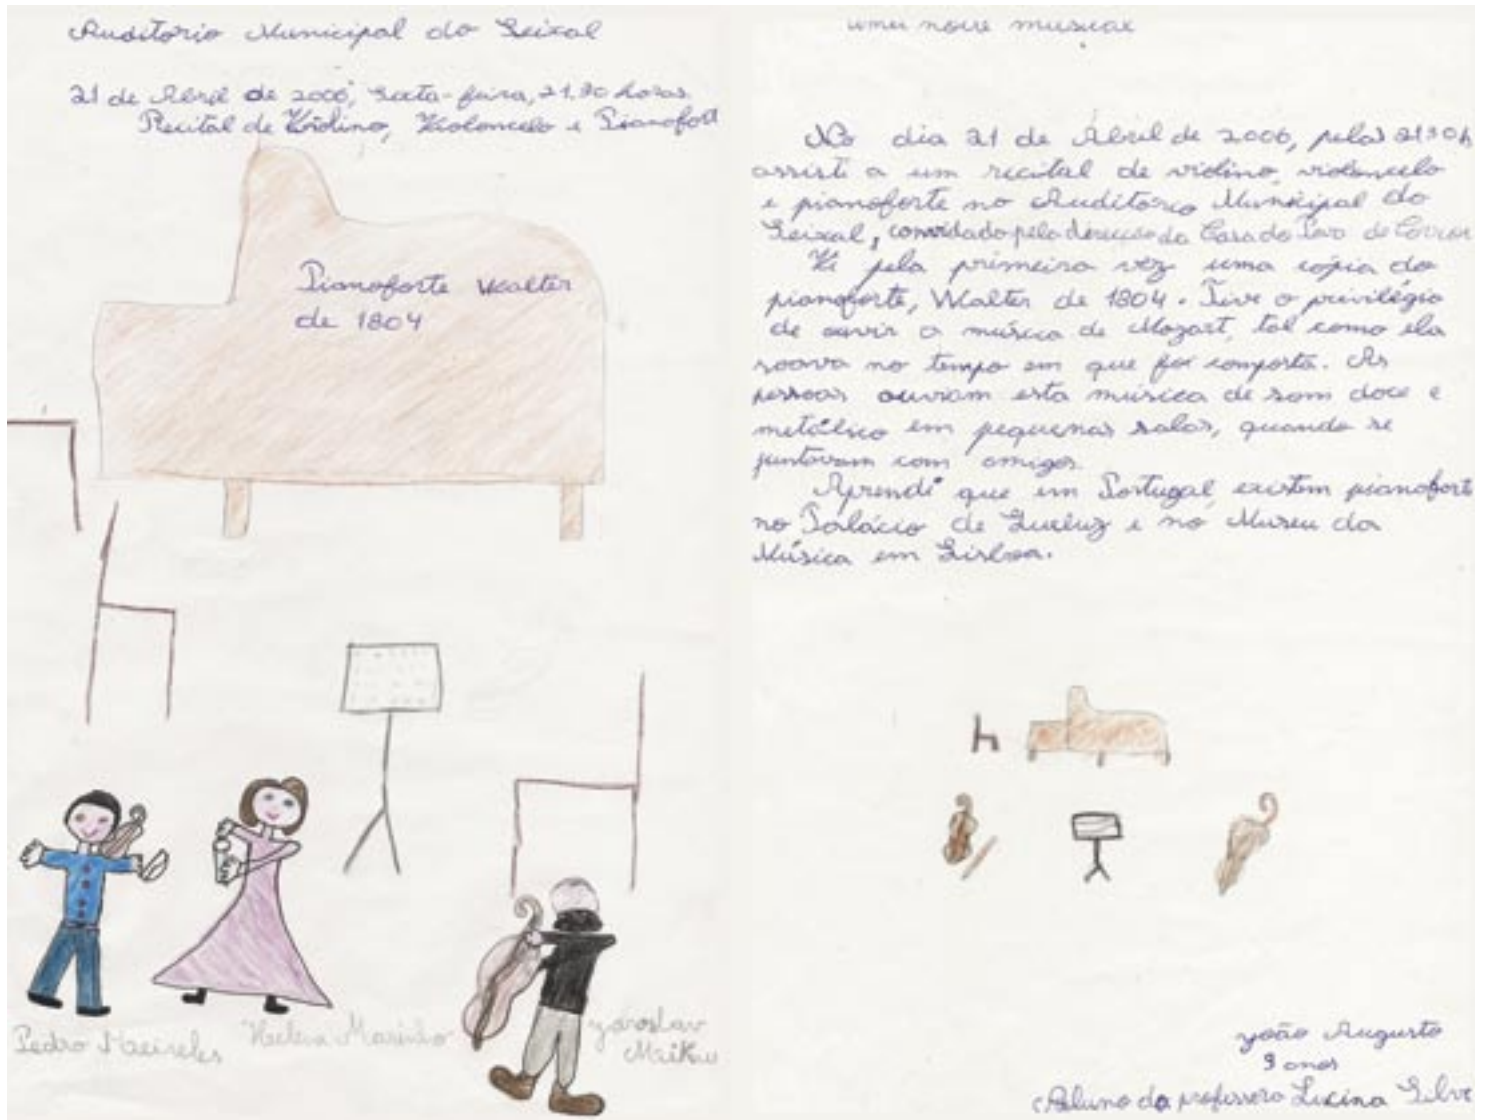 Auditorio Municipal do Seixal
21 de Abril de 2006, Sexta-feira, 21.30 horas
Recital de Violino, Violoncelo e Pianofort
Pianoforte Walter
de 1804
Pedro Meireles
Helena Marinho
Yaroslav
Mikus
uma noite musical
No dia 21 de Abril de 2006, pelas 2130h
assisti a um recital de violino, violoncelo
e pianoforte no Auditório Municipal do
Seixal, convidado pela direcção da Casa do Povo de Corroi
Vi pela primeira vez uma cópia do
pianoforte, Walter de 1804. Tive o privilégio
de ouvir a música de Mozart, tal como ela
soava no tempo em que foi composta. As
pessoas ouviam esta música de som doce e
metálico em pequenas salas, quando se
juntavam com amigos.
Aprendi que em Portugal existem pianofort
no Palácio de Queluz e no Museu da
Música em Lisboa.
João Augusto
9 anos
Aluno da professora Lucina Silve